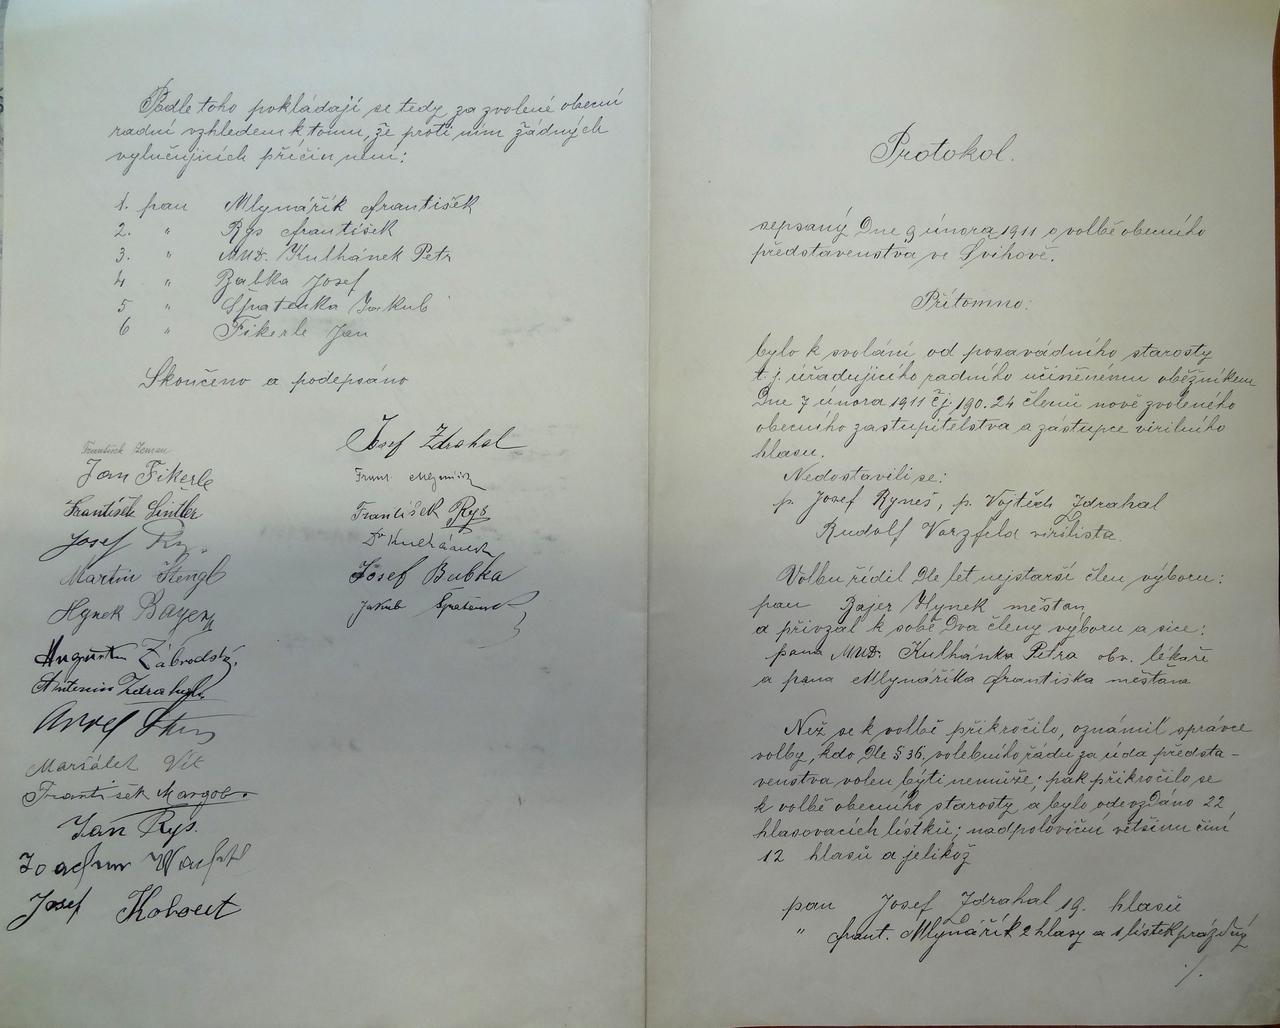 Podle toho pokládají se tedy za zvolené obecní
radní vzhledem k tomu, že proti nim žádných
vylučujících příčin není:
1. pan Mlynářík František
2. " Rys František
3. " MUDr. Kulhánek Petr
4 " Babka Josef
5 " Špatenka Jakub
6 " Fikerle Jan
Skončeno a podepsáno
Josef Zdrahal
František Zeman
Jan Fikerle
František
Josef
Martin Stengl
Hynek Bayer
Augustin Zábrodský
Antonín Zdrahal
Maršálek Vít
František
Jan Rys.
Joachim
Josef Kohout
Frant.
František Rys
Dr Kulhánek
Josef Babka
Jakub Špatenka
Protokol.
sepsaný Dne 9 února 1911 o volbě obecního
představenstva ve Švihově.
Přítomno:
bylo k svolání od posavádního starosty
t. j. úřadujícího radního učiněnému oběžníkem
Dne 7 února 1911 čj. 190. 24 členů nově zvoleného
obecního zastupitelstva a zástupce virilního
hlasu.
Nedostavili se:
p. Josef Ryneš, p. Vojtěch Zdrahal
Rudolf Vorzfeld virilista.
Volbu řídil Dle let nejstarší člen výboru:
pan Bajer Hynek měšťan
a přivzal k sobě Dva členy výboru a sice:
pana MUDr. Kulhánka Petra obv. lékaře
a pana Mlynáříka Františka měšťana
Než se k volbě přikročilo, oznámil správce
volby, kdo Dle § 36. volebního řádu za úda představ-
venstva volen býti nemůže; pak přikročilo se
k volbě obecního starosty a bylo odevzdáno 22
hlasovacích lístků; nadpoloviční většinu činí
12 hlasů a jelikož
pan Josef Zdrahal 19. hlasů
" Frant. Mlynářík 2 hlasy a 1 lístek prázdný
./.